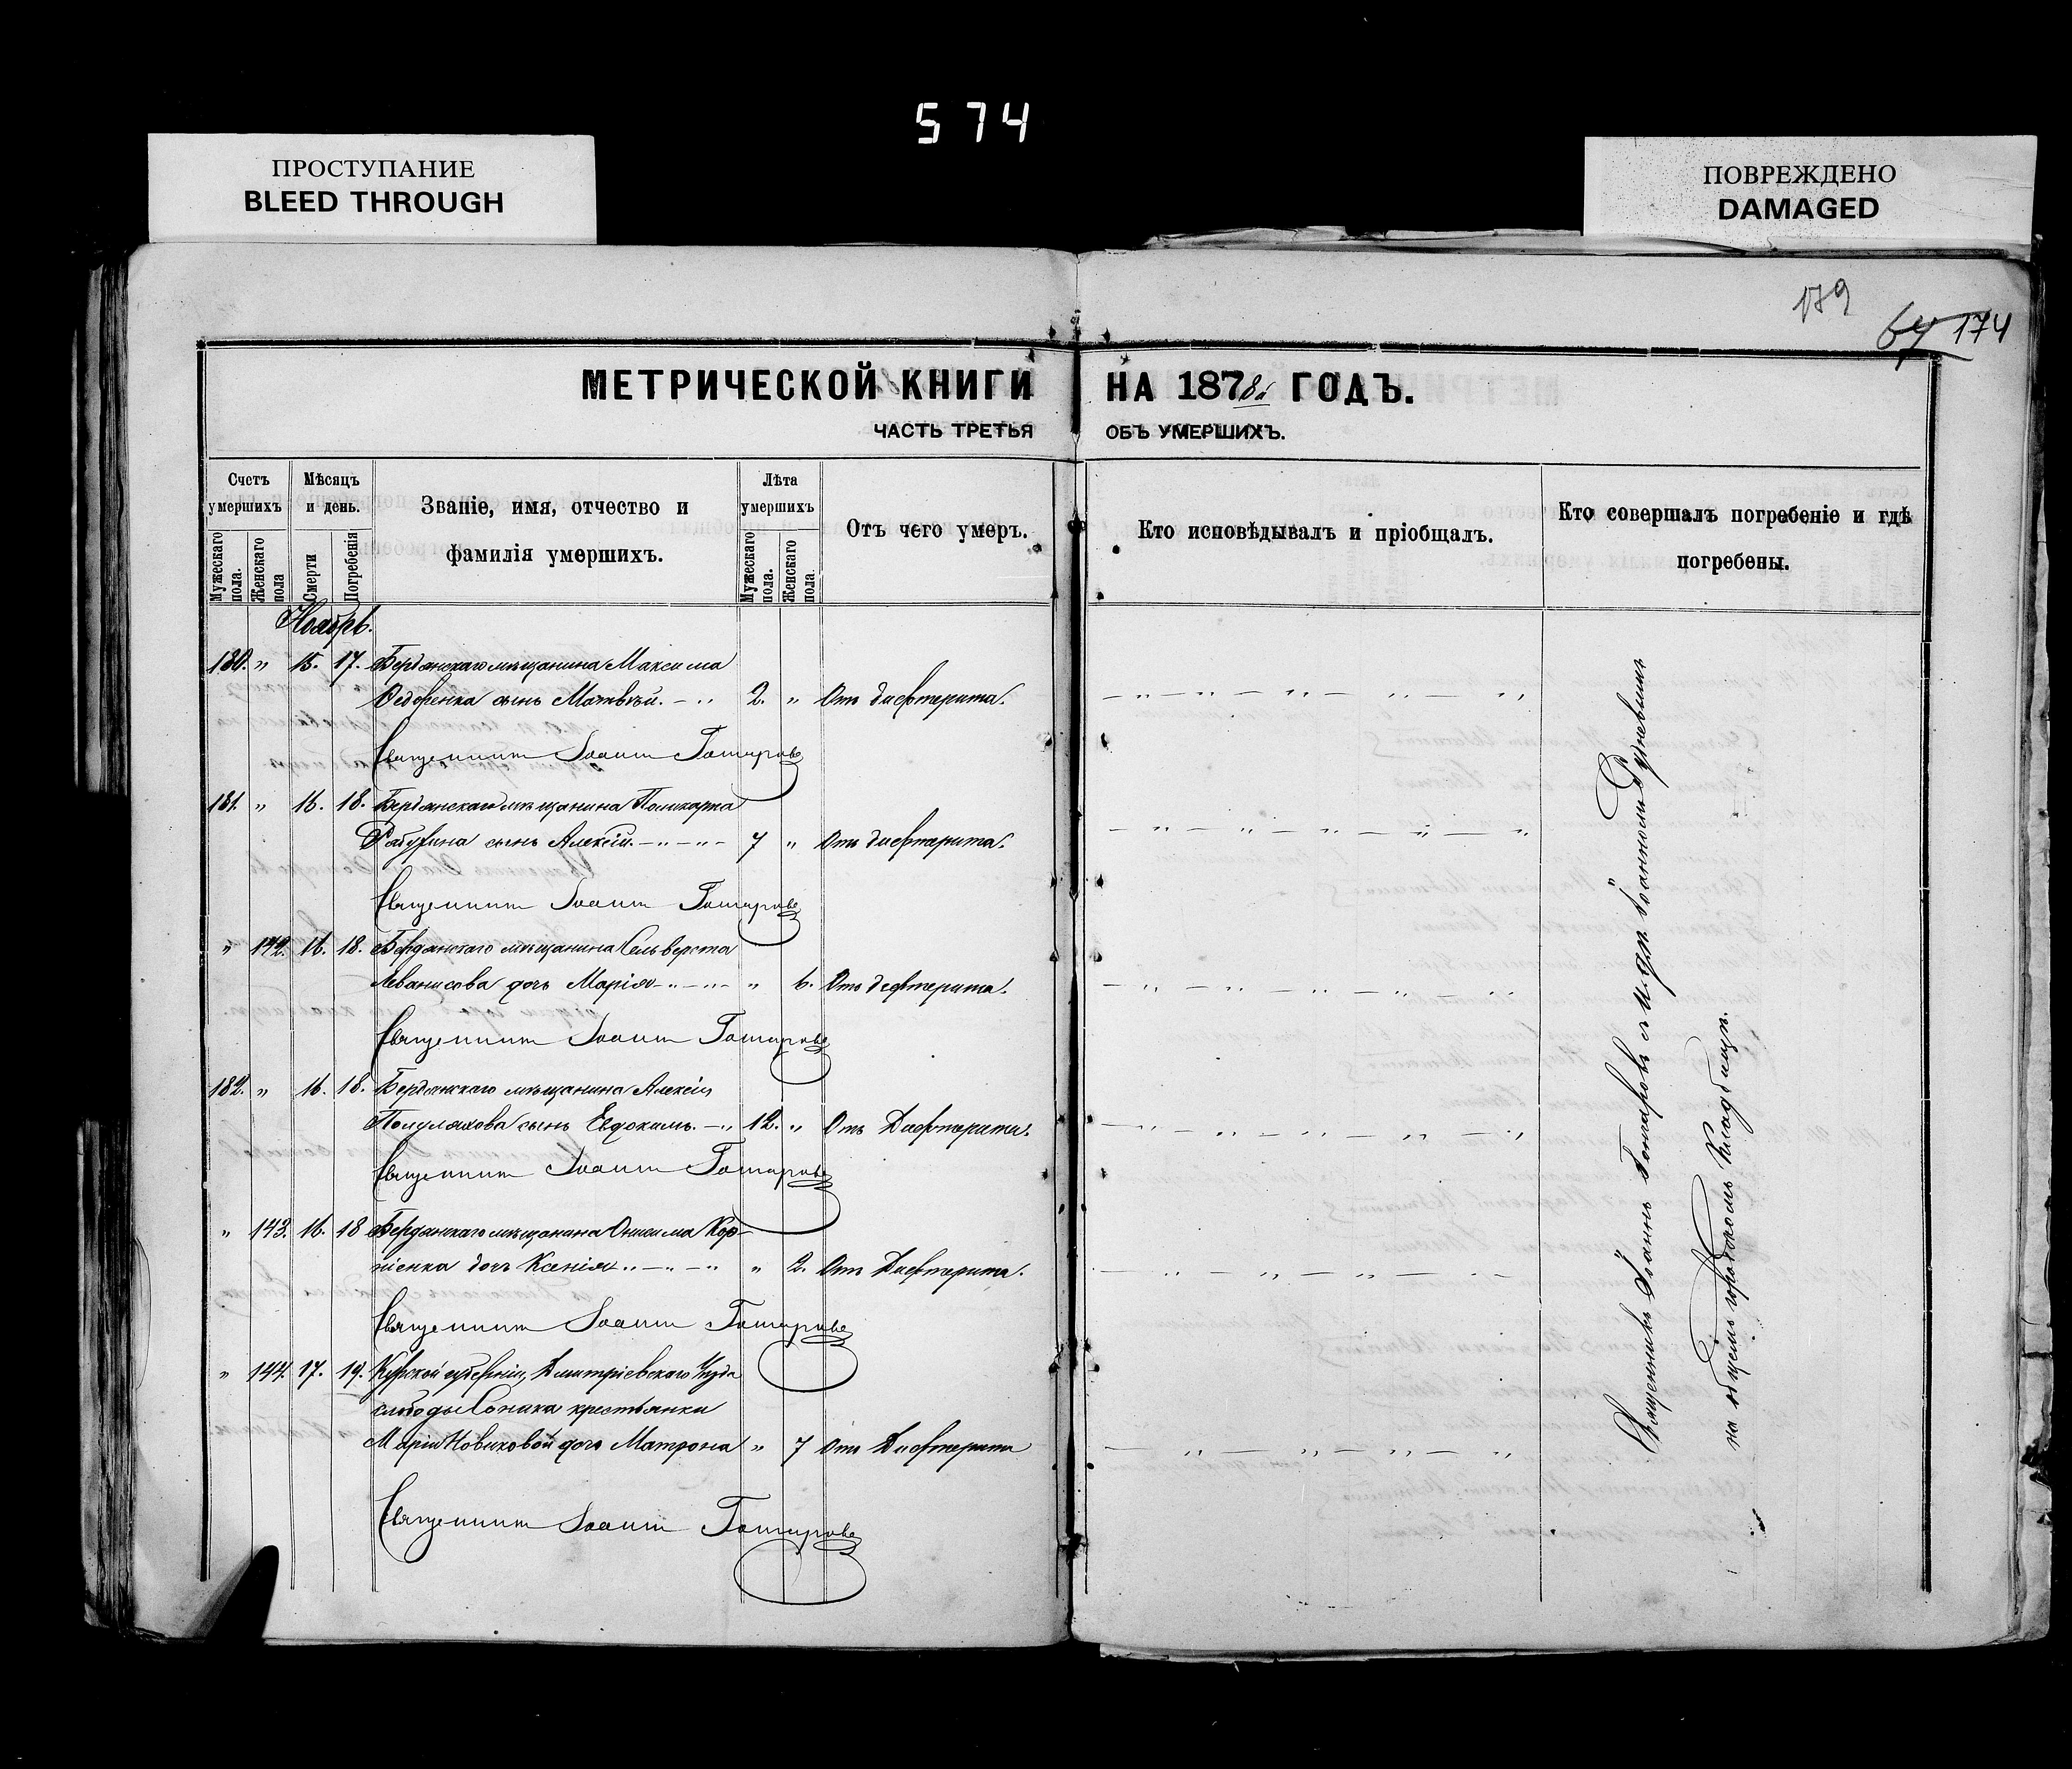 574
ПРОСТУПАНИЕ
BLEED THROUGH
ПОВРЕЖДЕНО
DAMAGED
179
67 174
МЕТРИЧЕСКОЙ КНИГИ НА 1878й ГОДЪ.
ЧАСТЬ ТРЕТЬЯ ОБЪ УМЕРШИХЪ.
Счетъ умершихъ
Мужескаго пола.
Женскаго пола
Мѣсяцъ и день.
Смерти
Погребенія
Званіе, имя, отчество и фамилія умершихъ.
Лѣта умершихъ
Мужескаго пола.
Женскаго пола.
Отъ чего умеръ.
Кто исповѣдывалъ и пріобщалъ.
Кто совершалъ погребеніе и гдѣ погребены.
Ноябрь.
180. „ 15. 17. Бердянскаго мѣщанина Максима
Федоренка сынъ Матвѣй. 2. „ Отъ дифтерита.
Священникъ Іоаннъ Гончаровъ
181. „ 16. 18. Бердянскаго мѣщанина Поликарпа
сынъ Алексій. 7 „ Отъ дифтерита.
Священникъ Іоаннъ Гончаровъ
„ 142. 16. 18. Бердянскаго мѣщанина Сельверста
дочь Марія „ 6. Отъ дефтерита.
Священникъ Іоаннъ Гончаровъ
182. „ 16. 18. Бердянскаго мѣщанина Алексія
Полуляхова сынъ Евдокимъ. 12. „ Отъ Дифтерита.
Священникъ Іоаннъ Гончаровъ
„ 143. 16. 18 Бердянскаго мѣщанина Онисима Кор-
ніенка дочь Ксенія „ 2. Отъ Дифтерита.
Священникъ Іоаннъ Гончаровъ
„ 144. 17. 19. Курской губерніи, Дмитріевскаго Уезда
слободы крестьянки
Маріи Новиковой дочь Матрона „ 7 Отъ Дифтерита
Священникъ Іоаннъ Гончаровъ
Священникъ Іоаннъ Гончаровъ съ Іоанномъ Рудневымъ
на общемъ городскомъ кладбищѣ.